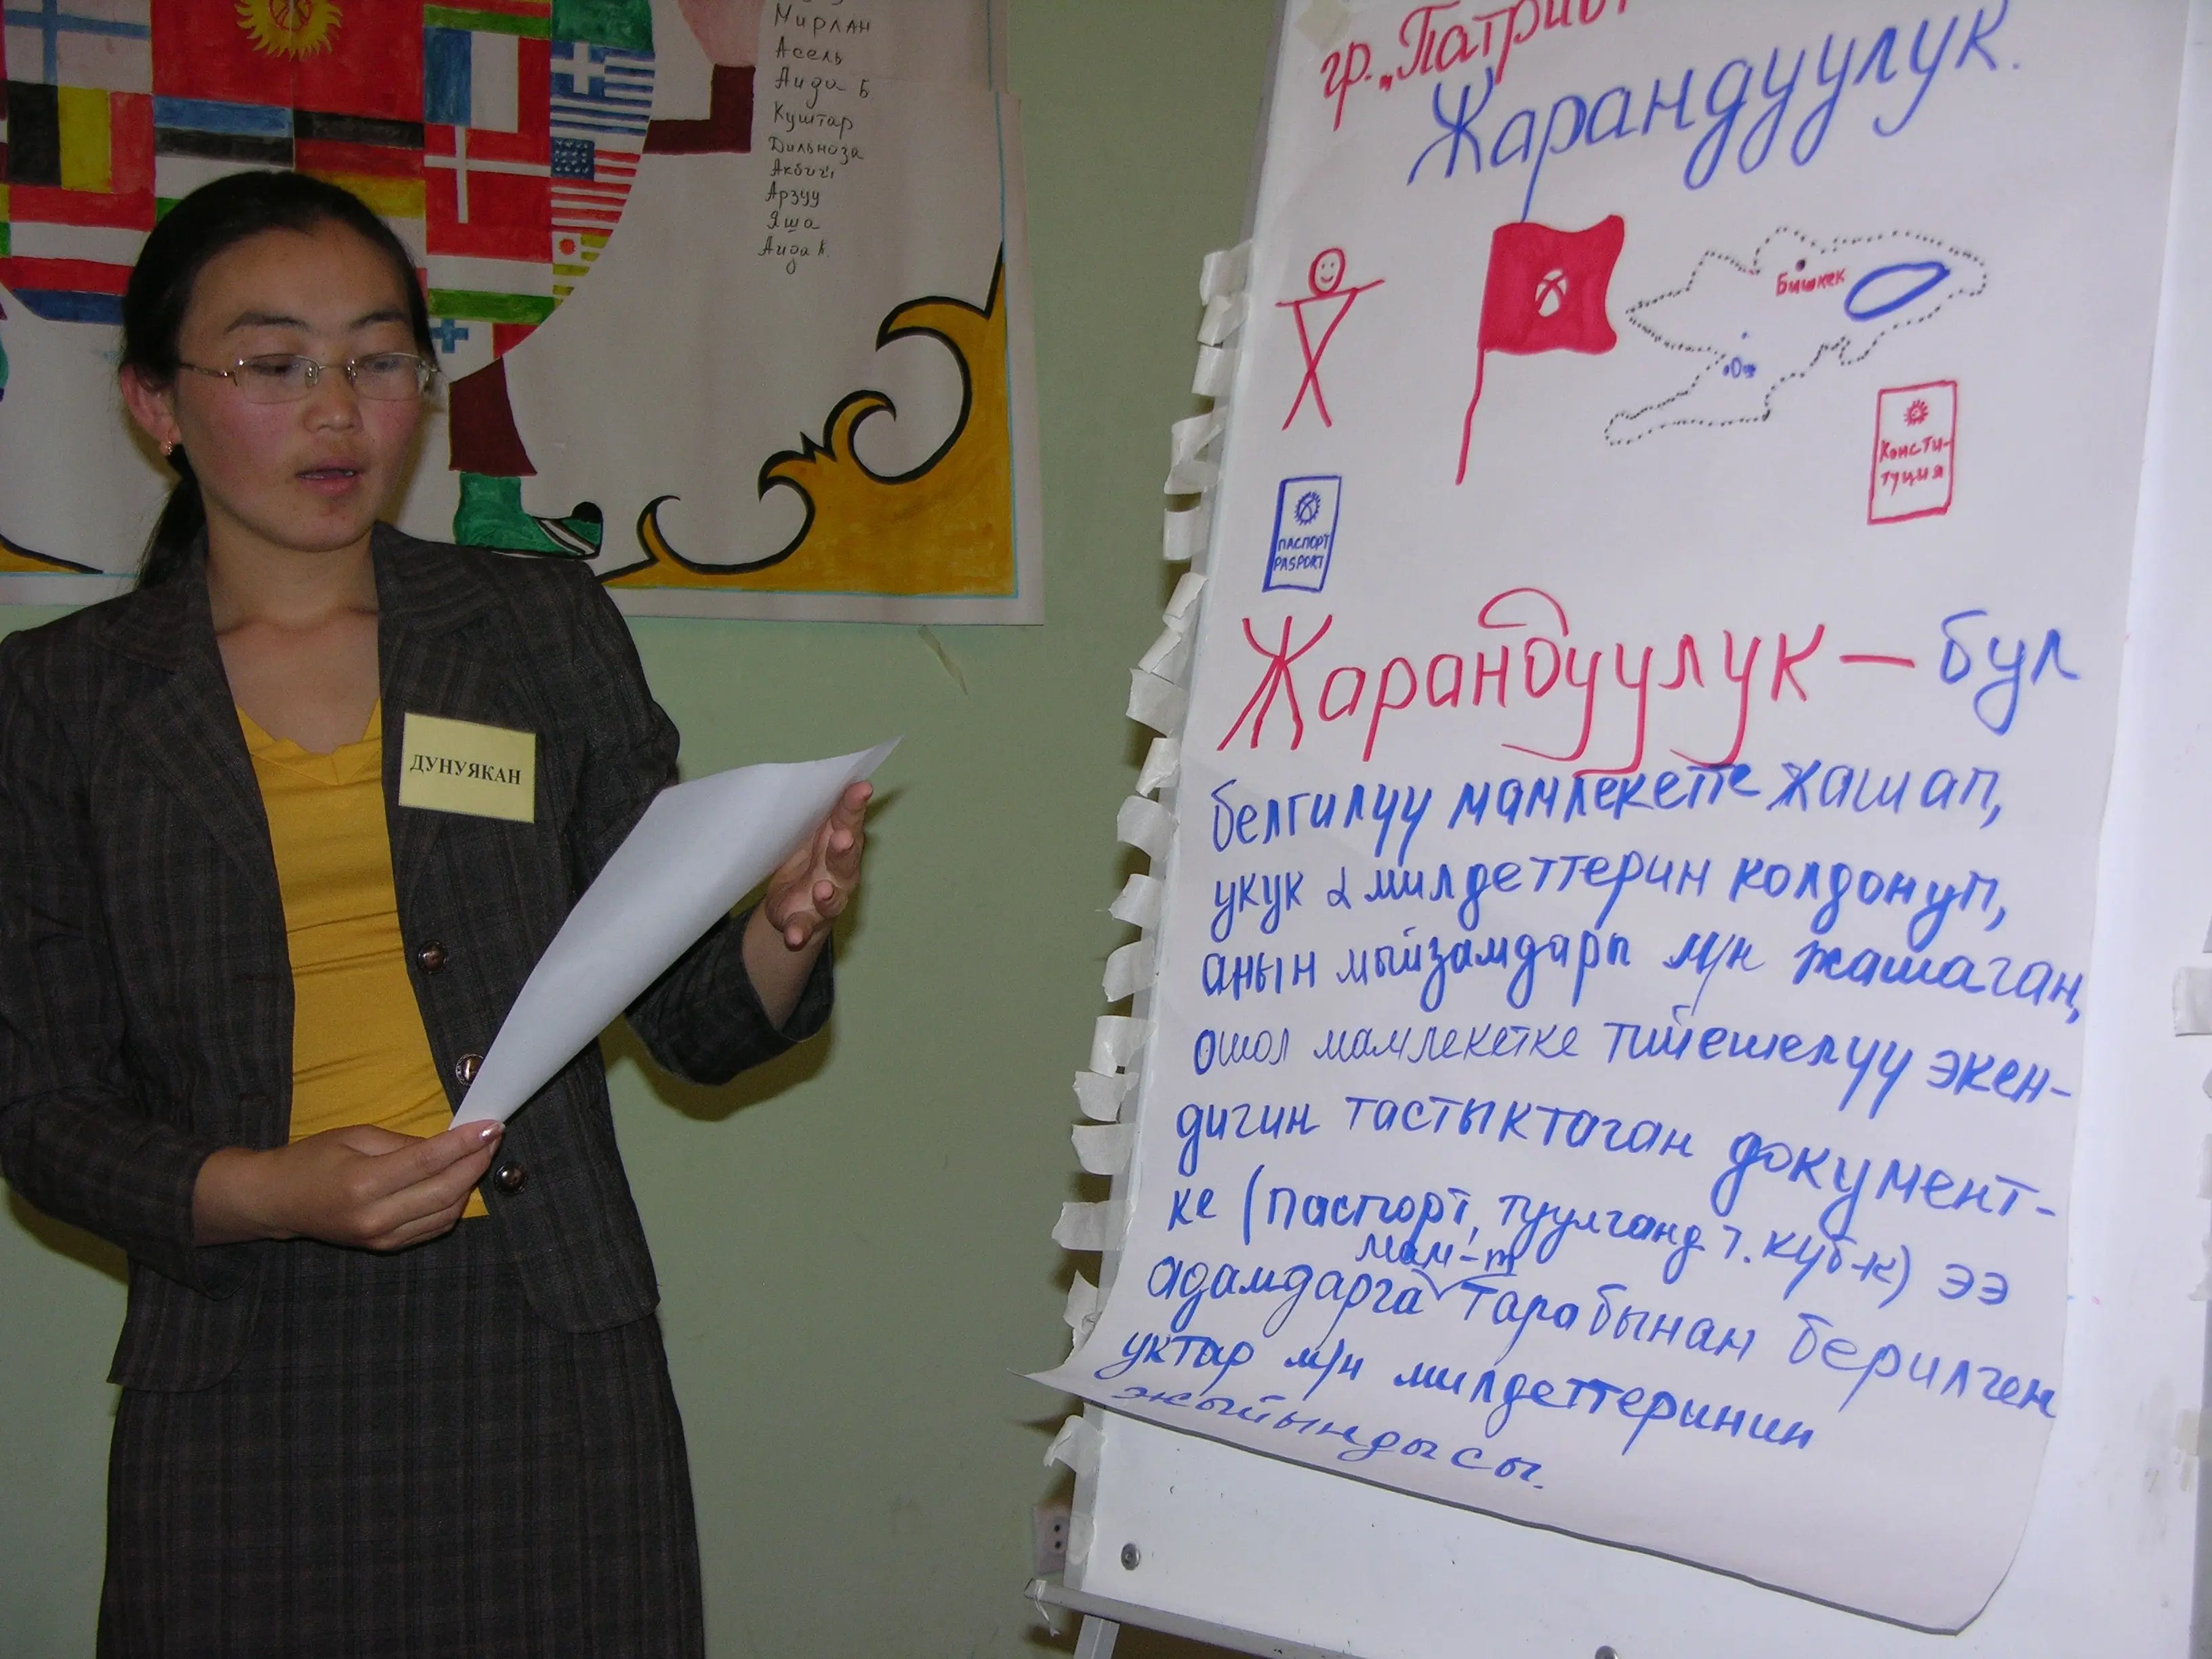 Мирлан
Асель
Аида Б
Куштар
Дильноза
Арзуу
Яша
Аида К.
ДУНУЯКАН
гр. „Патриот
Жарандуулук.
Бишкек
Ош
Консти-
туция
ПАСПОРТ
PASPORT
Жарандуулук — бул
белгилүү мамлекетте жашап,
укук & милдеттерин колдонуп,
анын мыйзамдары м/н жашаган,
ошол мамлекетке тийешелүү экен-
дигин тастыктаган документ-
ке (паспорт, туулганд. т. күб-к) ээ
мам-т
адамдарга тарабынан берилген
уктар м/н милдеттеринин
жыйындысы.